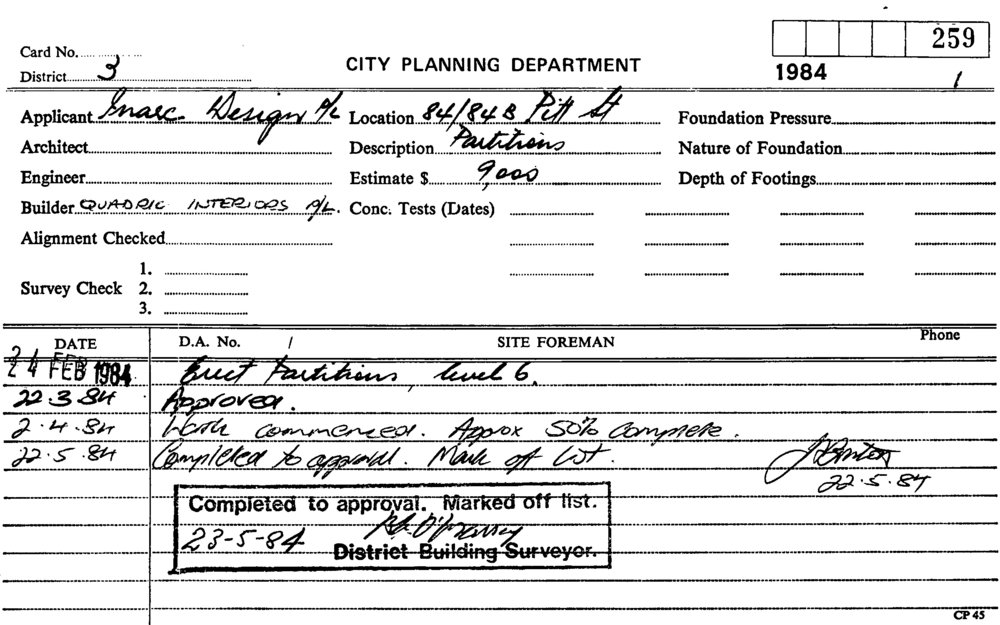 259
Card No.
CITY PLANNING DEPARTMENT
District 3
1984
1
Applicant Inarc Design P/L Location 84/84B Pitt St Foundation Pressure
Architect Description Partitions Nature of Foundation
Engineer Estimate $ 9,000 Depth of Footings
Builder QUADRIC INTERIORS P/L. Conc. Tests (Dates)
Alignment Checked
1.
Survey Check 2.
3.
DATE D.A. No. / SITE FOREMAN Phone
24 FEB 1984 Erect Partitions, level 6.
22.3.84 Approved.
2.4.84 Work commenced. Approx 50% complete.
22.5.84 Completed to approval. Mark off list.
22.5.84
Completed to approval. Marked off list.
23-5-84
District Building Surveyor.
CP 45